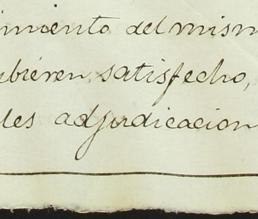 imiento del mism
ubiéren satisfecho,
les adjudicacion